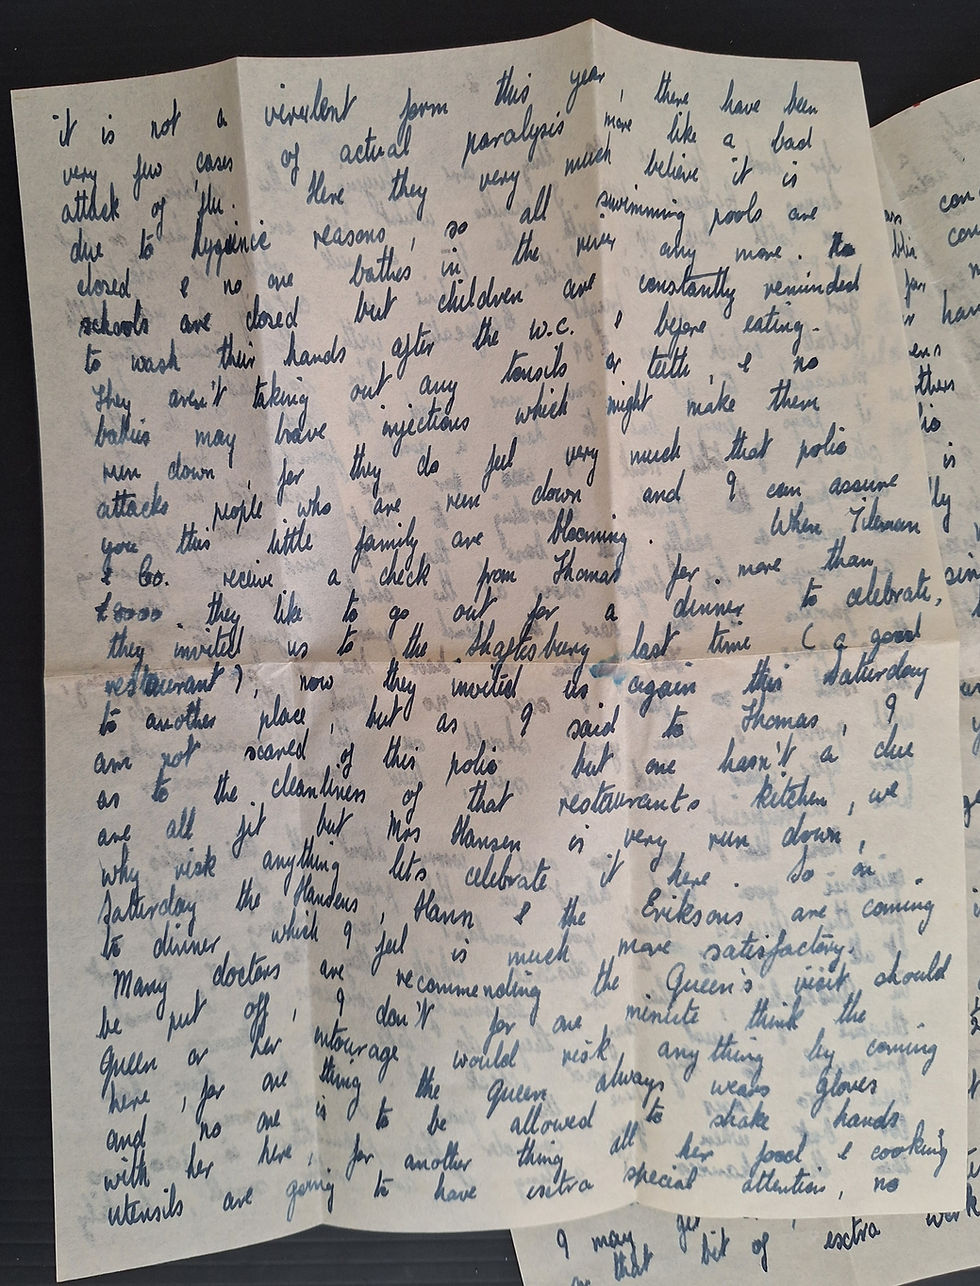 it is not a virulent form this year, there have been
very few cases of actual paralysis more like a bad
attack of flu. Here they very much believe it is
due to hygienic reasons, so all swimming pools are
closed & no one bathes in the river any more. No
schools are closed but children are constantly reminded
to wash their hands after the W.C. & before eating.
They aren't taking out any tonsils or teeth, & no
babies may have injections which might make them
run down, for they do feel very much that polio
attacks people who are run down and I can assure
you this little family are blooming. When Tileman
& Co. receive a check from Thomas for more than
£8000 they like to go out for a dinner to celebrate,
they invited us to the Shaftesbury last time (a good
restaurant), now they invited us again this Saturday
to another place, but as I said to Thomas, I
am not scared of this polio but one hasn't a clue
as to the cleanliness of that restaurants kitchen, we
are all fit but Mrs Hansen is very run down,
why risk anything let's celebrate it here. So on
Saturday the Hansens, Hann & the Eriksons are coming
to dinner which I feel is much more satisfactory.
Many doctors are recommending the Queen's visit should
be put off, I don't for one minute think the
Queen or her entourage would risk anything by coming
here, for one thing the Queen always wears gloves
and no one is to be allowed to shake hands
with her here, for another thing all her food & cooking
utensils are going to have esctra special attention, no
con
have
them
is
I may get
or that bit of esctra work